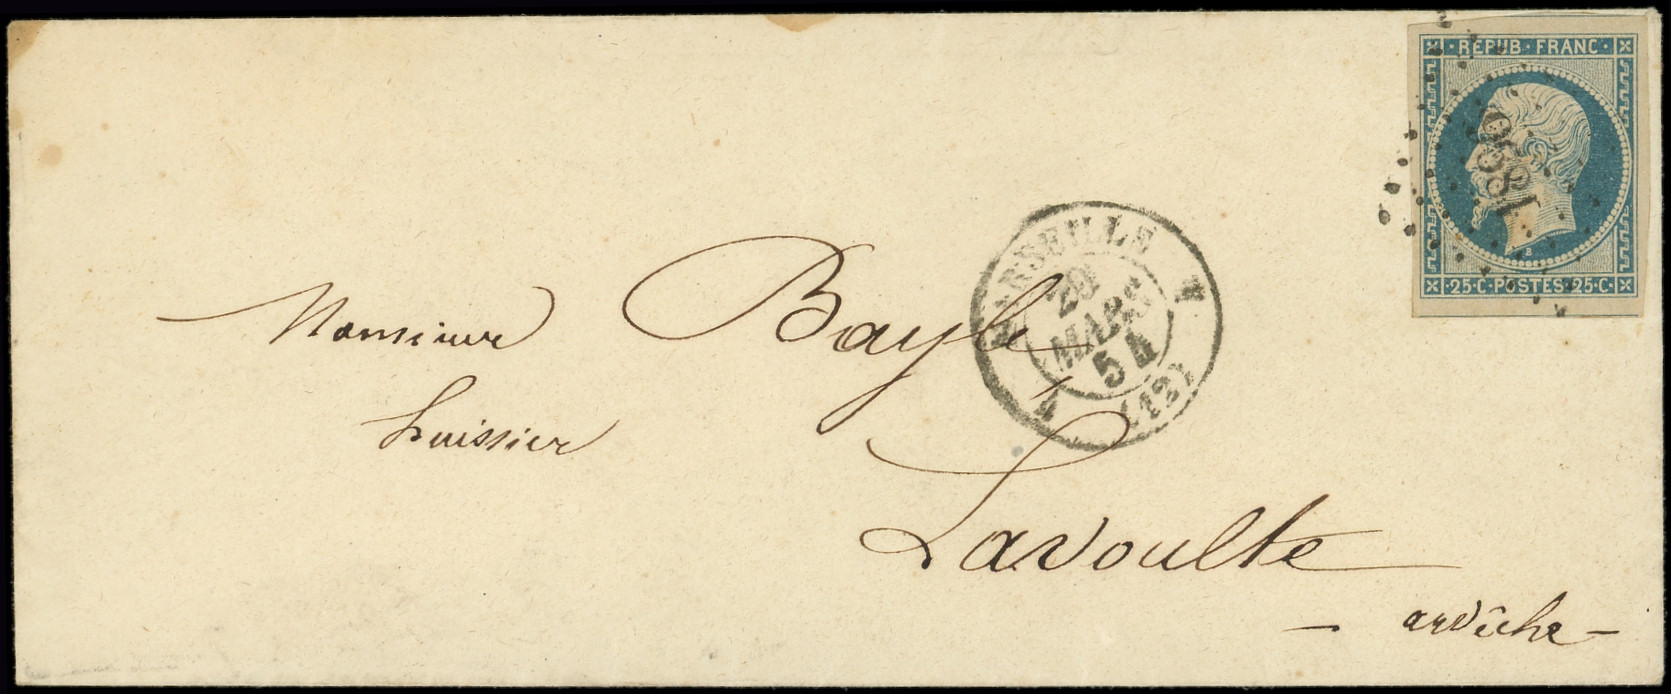 REPUB. FRANC.
1896
B
25.C. POSTES.25.C.
MARSEILLE
29
MARS
54
(12)
Monsieur Bayle
huissier
Lavoulte
- ardèche -